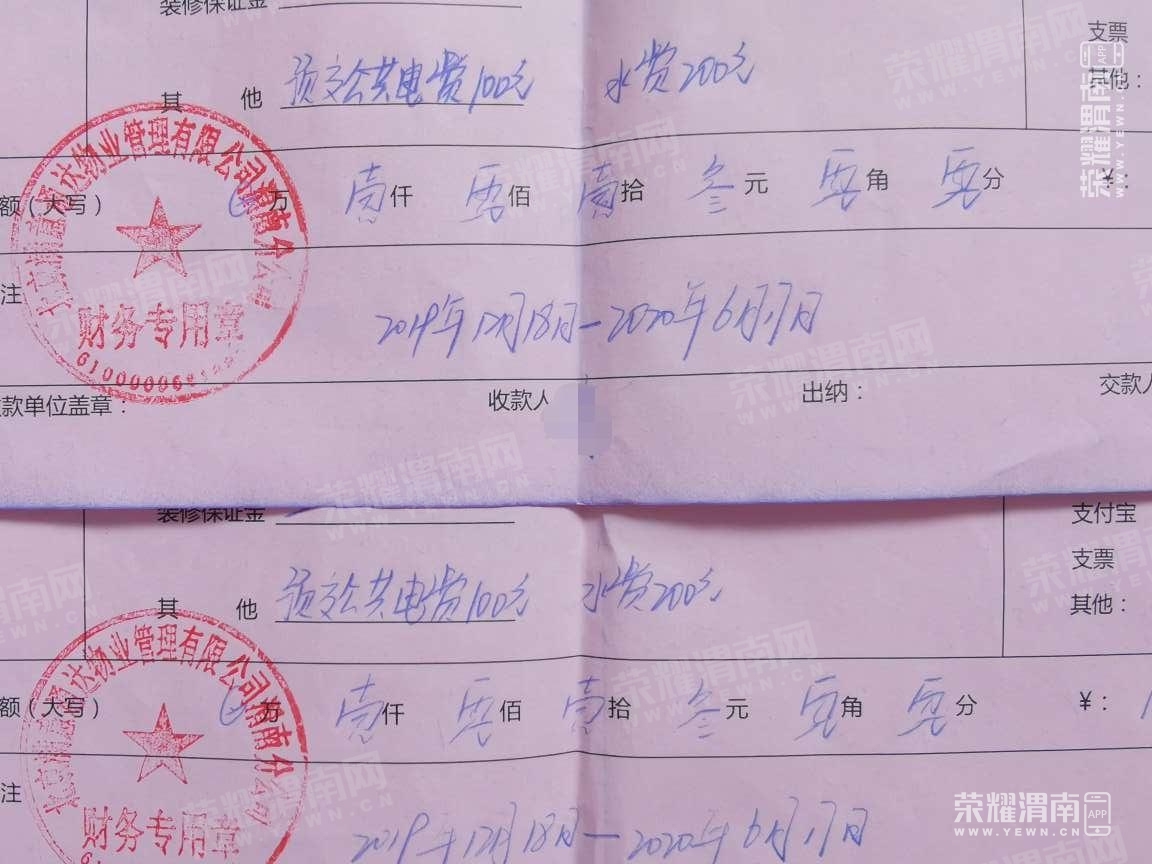 装修保证金
支票
其他 预交公共电费100元 水费200元
其他:
额(大写) 万 壹仟 零佰 壹拾 叁元 零角 零分 ¥:
注 2019年12月18日—2020年6月17日
物业管理有限公司渭南分公司
财务专用章
款单位盖章: 收款人 出纳: 交款人
装修保证金
支付宝
支票
其他 预交公共电费100元 水费200元
其他:
额(大写) 万 壹仟 零佰 壹拾 叁元 零角 零分 ¥:
注 2019年12月18日—2020年6月17日
物业管理有限公司渭南分公司
财务专用章
荣耀渭南网
WWW.YEWN.CN
荣耀渭南 APP
WWW.YEWN.CN